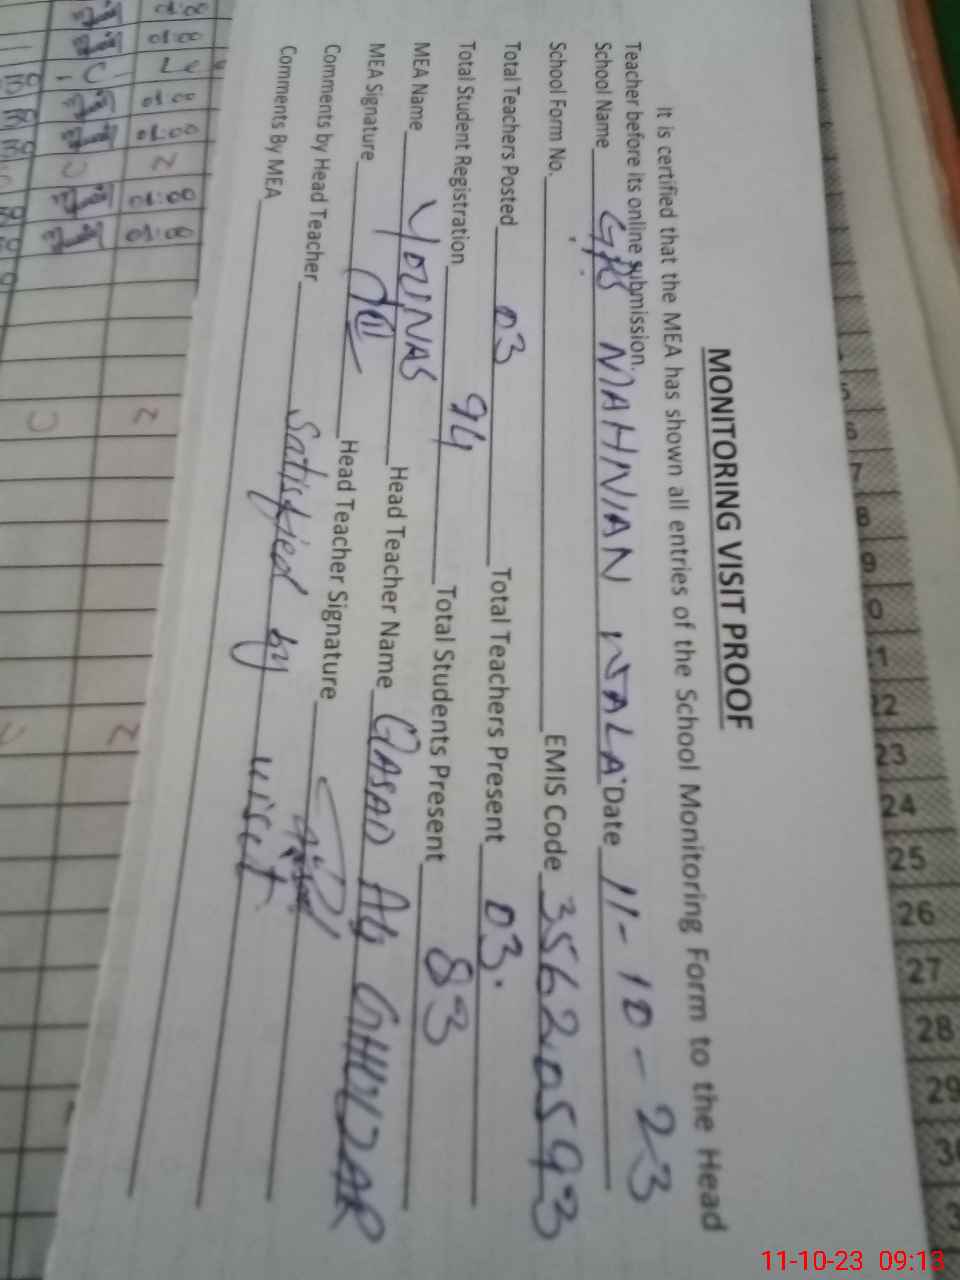 MONITORING VISIT PROOF
It is certified that the MEA has shown all entries of the School Monitoring Form to the Head
Teacher before its online submission.
School Name GPS MAHNIAN WALA Date 11-10-23
School Form No. EMIS Code 35620593
Total Teachers Posted 03 Total Teachers Present 03.
Total Student Registration 94 Total Students Present 83
MEA Name YOUNAS Head Teacher Name
MEA Signature Head Teacher Signature
Comments by Head Teacher Satisfied by visit
Comments By MEA
22
23
24
25
26
27
28
29
11-10-23 09:13